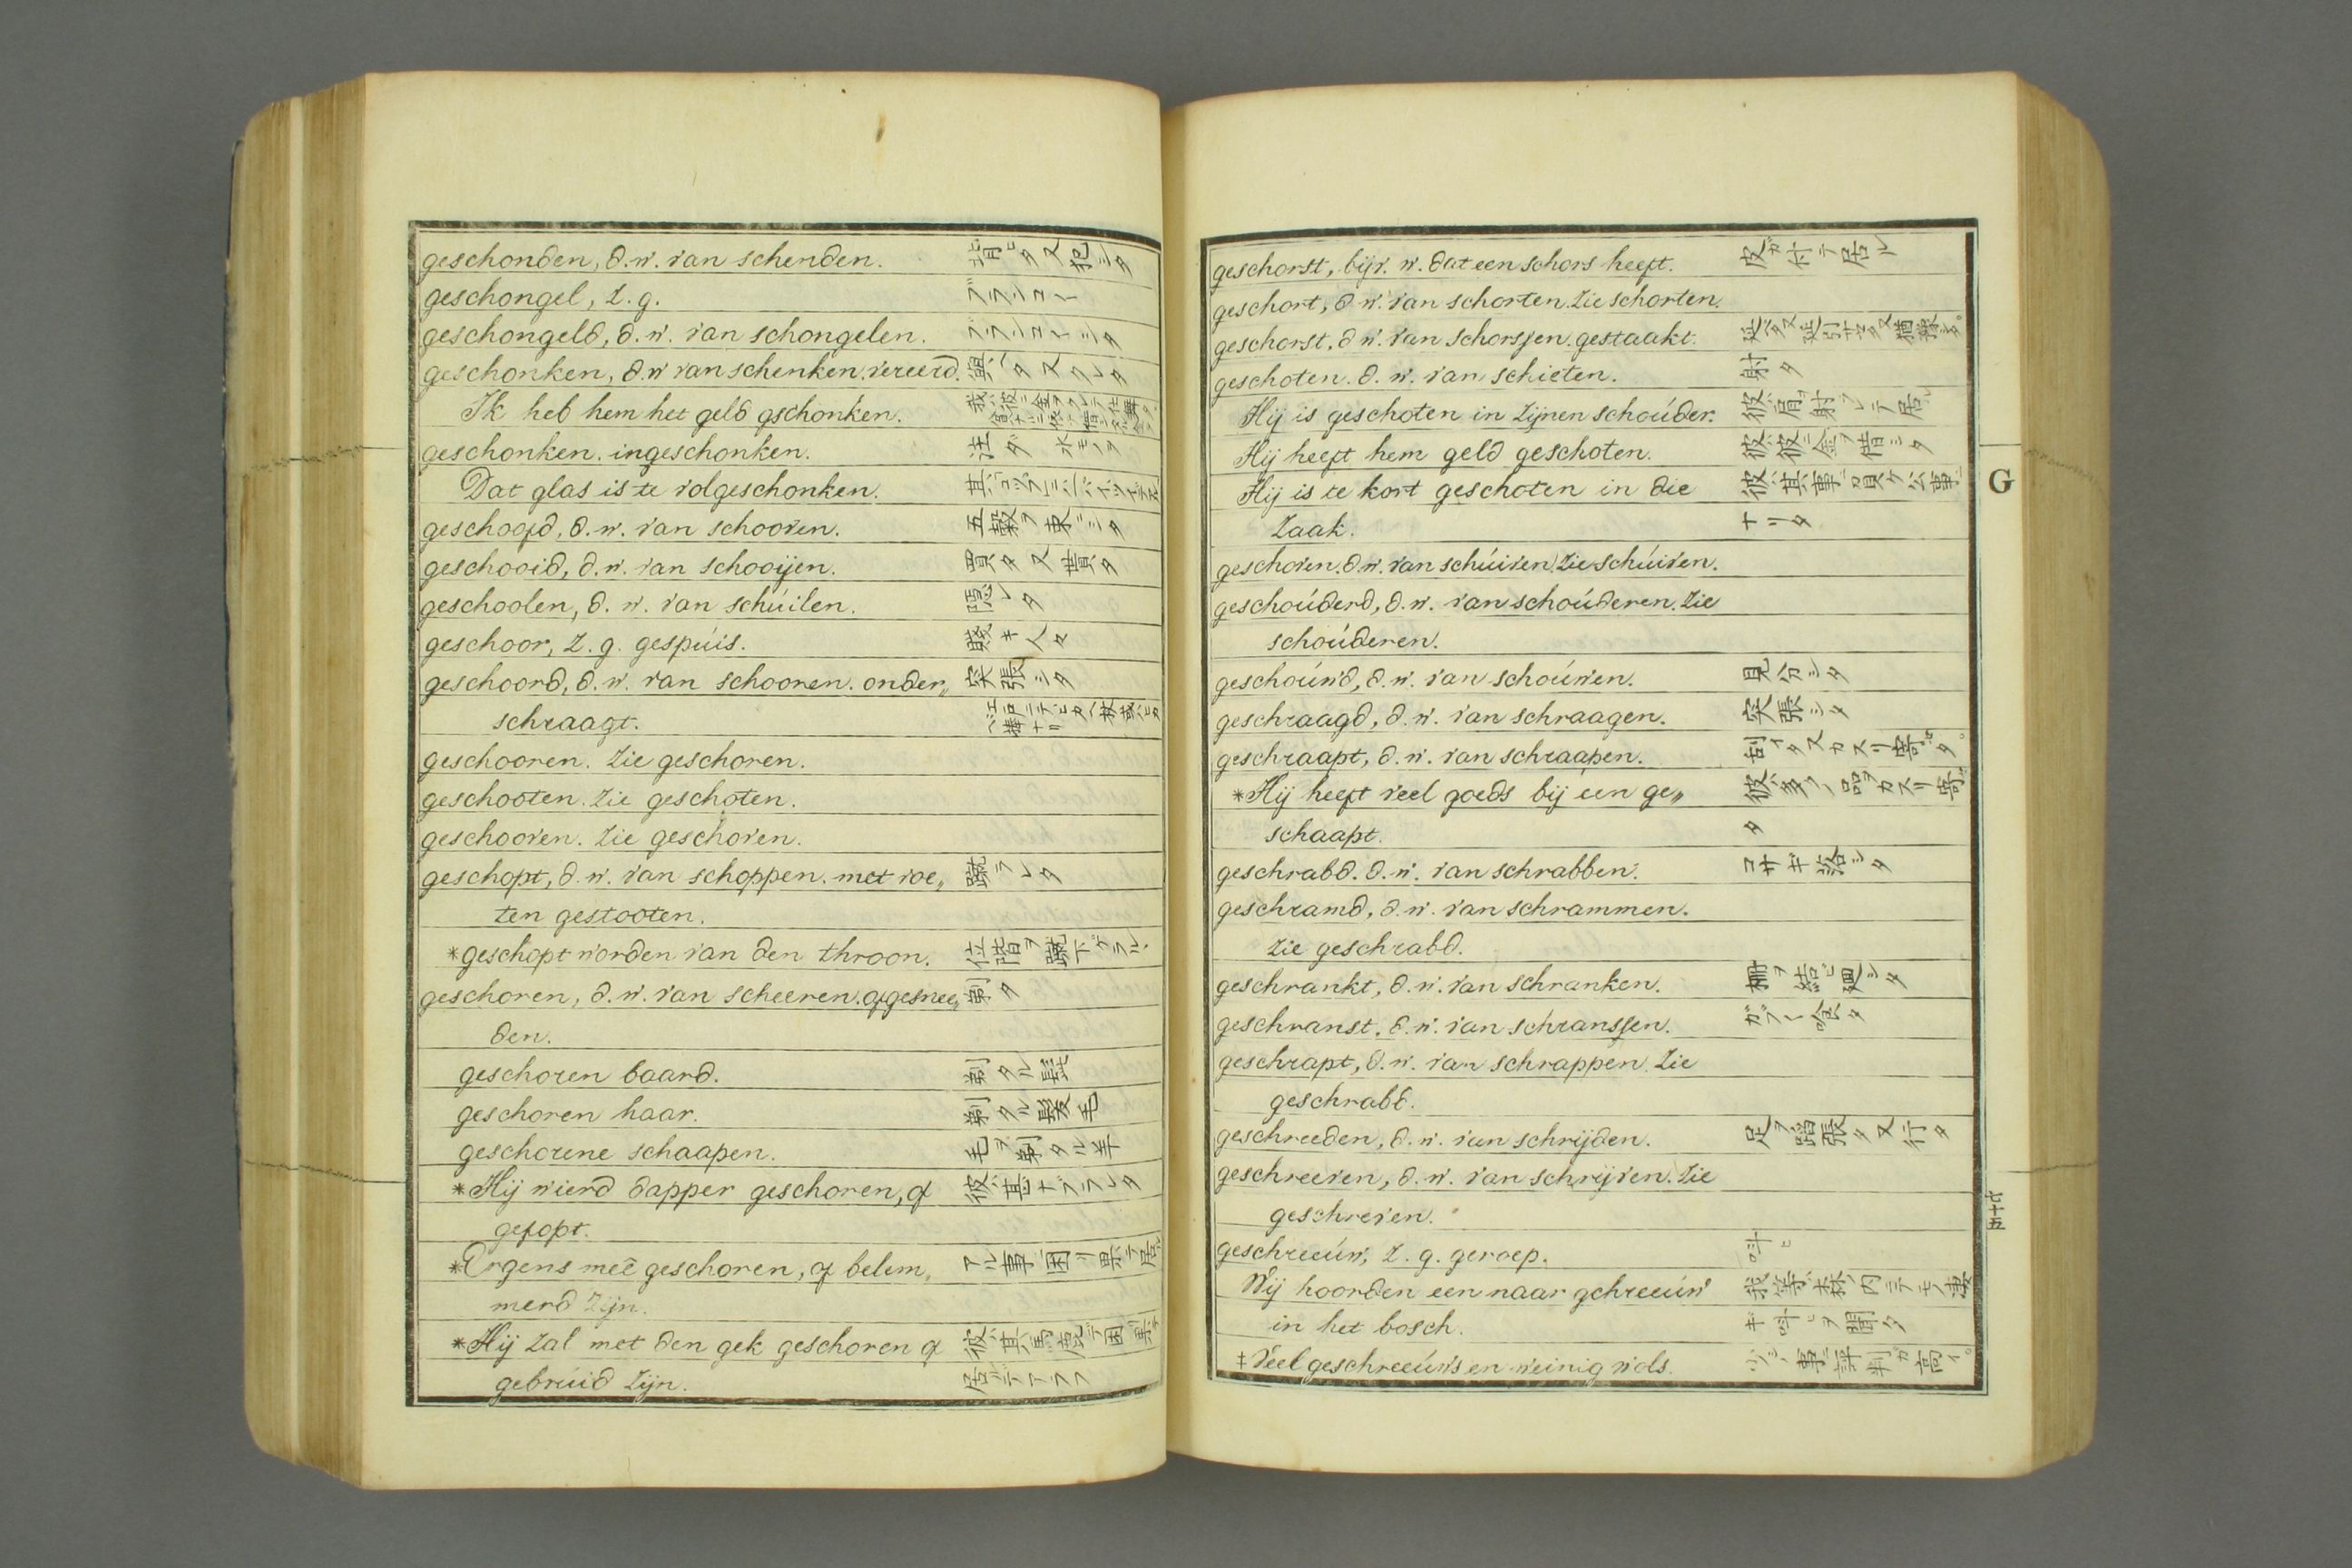 geschonden, d.w. van schenden. 背ヒタ又犯シタ
geschongel, z.g. ブランコー
geschongeld, d.w. van schongelen. ブランコーシタ
geschonken, d.w van schenken. vereerd. 與ヘタ又クレタ
Ik heb hem het geld gschonken.
geschonken. ingeschonken. 注ダ 水ナドヲ
Dat glas is te volgeschonken.
geschoofd, d.w. van schooven. 五穀ヲ束ニシタ
geschooid, d.w. van schooijen. 買タ又貰タ
geschoolen, d.w. van schúilen. 隠レタ
geschoor, z.g. gespúis. 賤キ人々
geschoord, d.w. van schooren. onder„ 突張シタ
schraagt.
geschooren. zie geschoren.
geschooten. zie geschoten.
geschooven. zie geschoven.
geschopt, d.w. van schoppen. met voe„ 蹴ラレタ
ten gestooten.
*geschopt worden van den throon. 位階ヲ蹴下ゲラル
geschoren, d.w. van scheeren. afgesnee„ 剃タ
den.
geschoren baard. 剃タル髭
geschoren haar. 剃タル髪毛
geschorene schaapen. 毛ヲ剃タル羊
*Hij wierd dapper geschoren, of 彼ハ甚ナブラレタ
gefopt.
*Ergens meê geschoren, of belem„ アル事ニ困リ果テ居ル
merd zijn.
*Hij zal met den gek geschoren of 彼ハ其馬鹿ニテ困リ果テ
gebruid zijn. 居ルデアラフ
geschorst, bijv. w. dat een schors heeft. 皮ガ付テ居ル
geschort, d.w. van schorten. zie schorten.
geschorst, d.w. van schorssen. gestaakt.
geschoten. d.w. van schieten. 射タ
Hij is geschoten in zijnen schoúder. 彼ハ肩ヲ射ラレテ居ル
Hij heeft hem geld geschoten. 彼ハ彼ニ金ヲ借シタ
Hij is te kort geschoten in die 彼ハ其事ニ負ケ公事ニ
zaak. ナリタ
geschoven. d.w. van schúiven. zie schúiven.
geschoúderd, d.w. van schoúderen. zie
schoúderen.
geschoúwd, d.w. van schoúwen. 見分シタ
geschraagd, d.w. van schraagen. 突張シタ
geschraapt, d.w. van schraapen. 刮イタ又カスリ寄セタ
*Hij heeft veel goeds bij een ge„ 彼ハ多クノ品ヲカスリ寄セ
schaapt. タ
geschrabd. d.w. van schrabben. コサギ浴シタ
geschramd, d.w. van schrammen.
zie geschrabd.
geschrankt, d.w. van schranken. 柵ヲ結ビ廻シタ
geschranst, d.w. van schranssen. ガブー喰タ
geschrapt, d.w. van schrappen. zie
geschrabd.
geschreeden, d.w. van schrijden. 足ヲ蹈張タ又行タ
geschreeven, d.w. van schrijven. zie
geschreven.
geschreeúw, z.g. geroep. 呌ヒ
Wij hoorden een naar gchreeúw 我等ハ森ノ内ニテモノ凄
in het bosch. キ呌ヒヲ聞ク
‡Veel geschreeúws en weinig wols. 少シノ事ニ評判ガ高イ
G
七十五